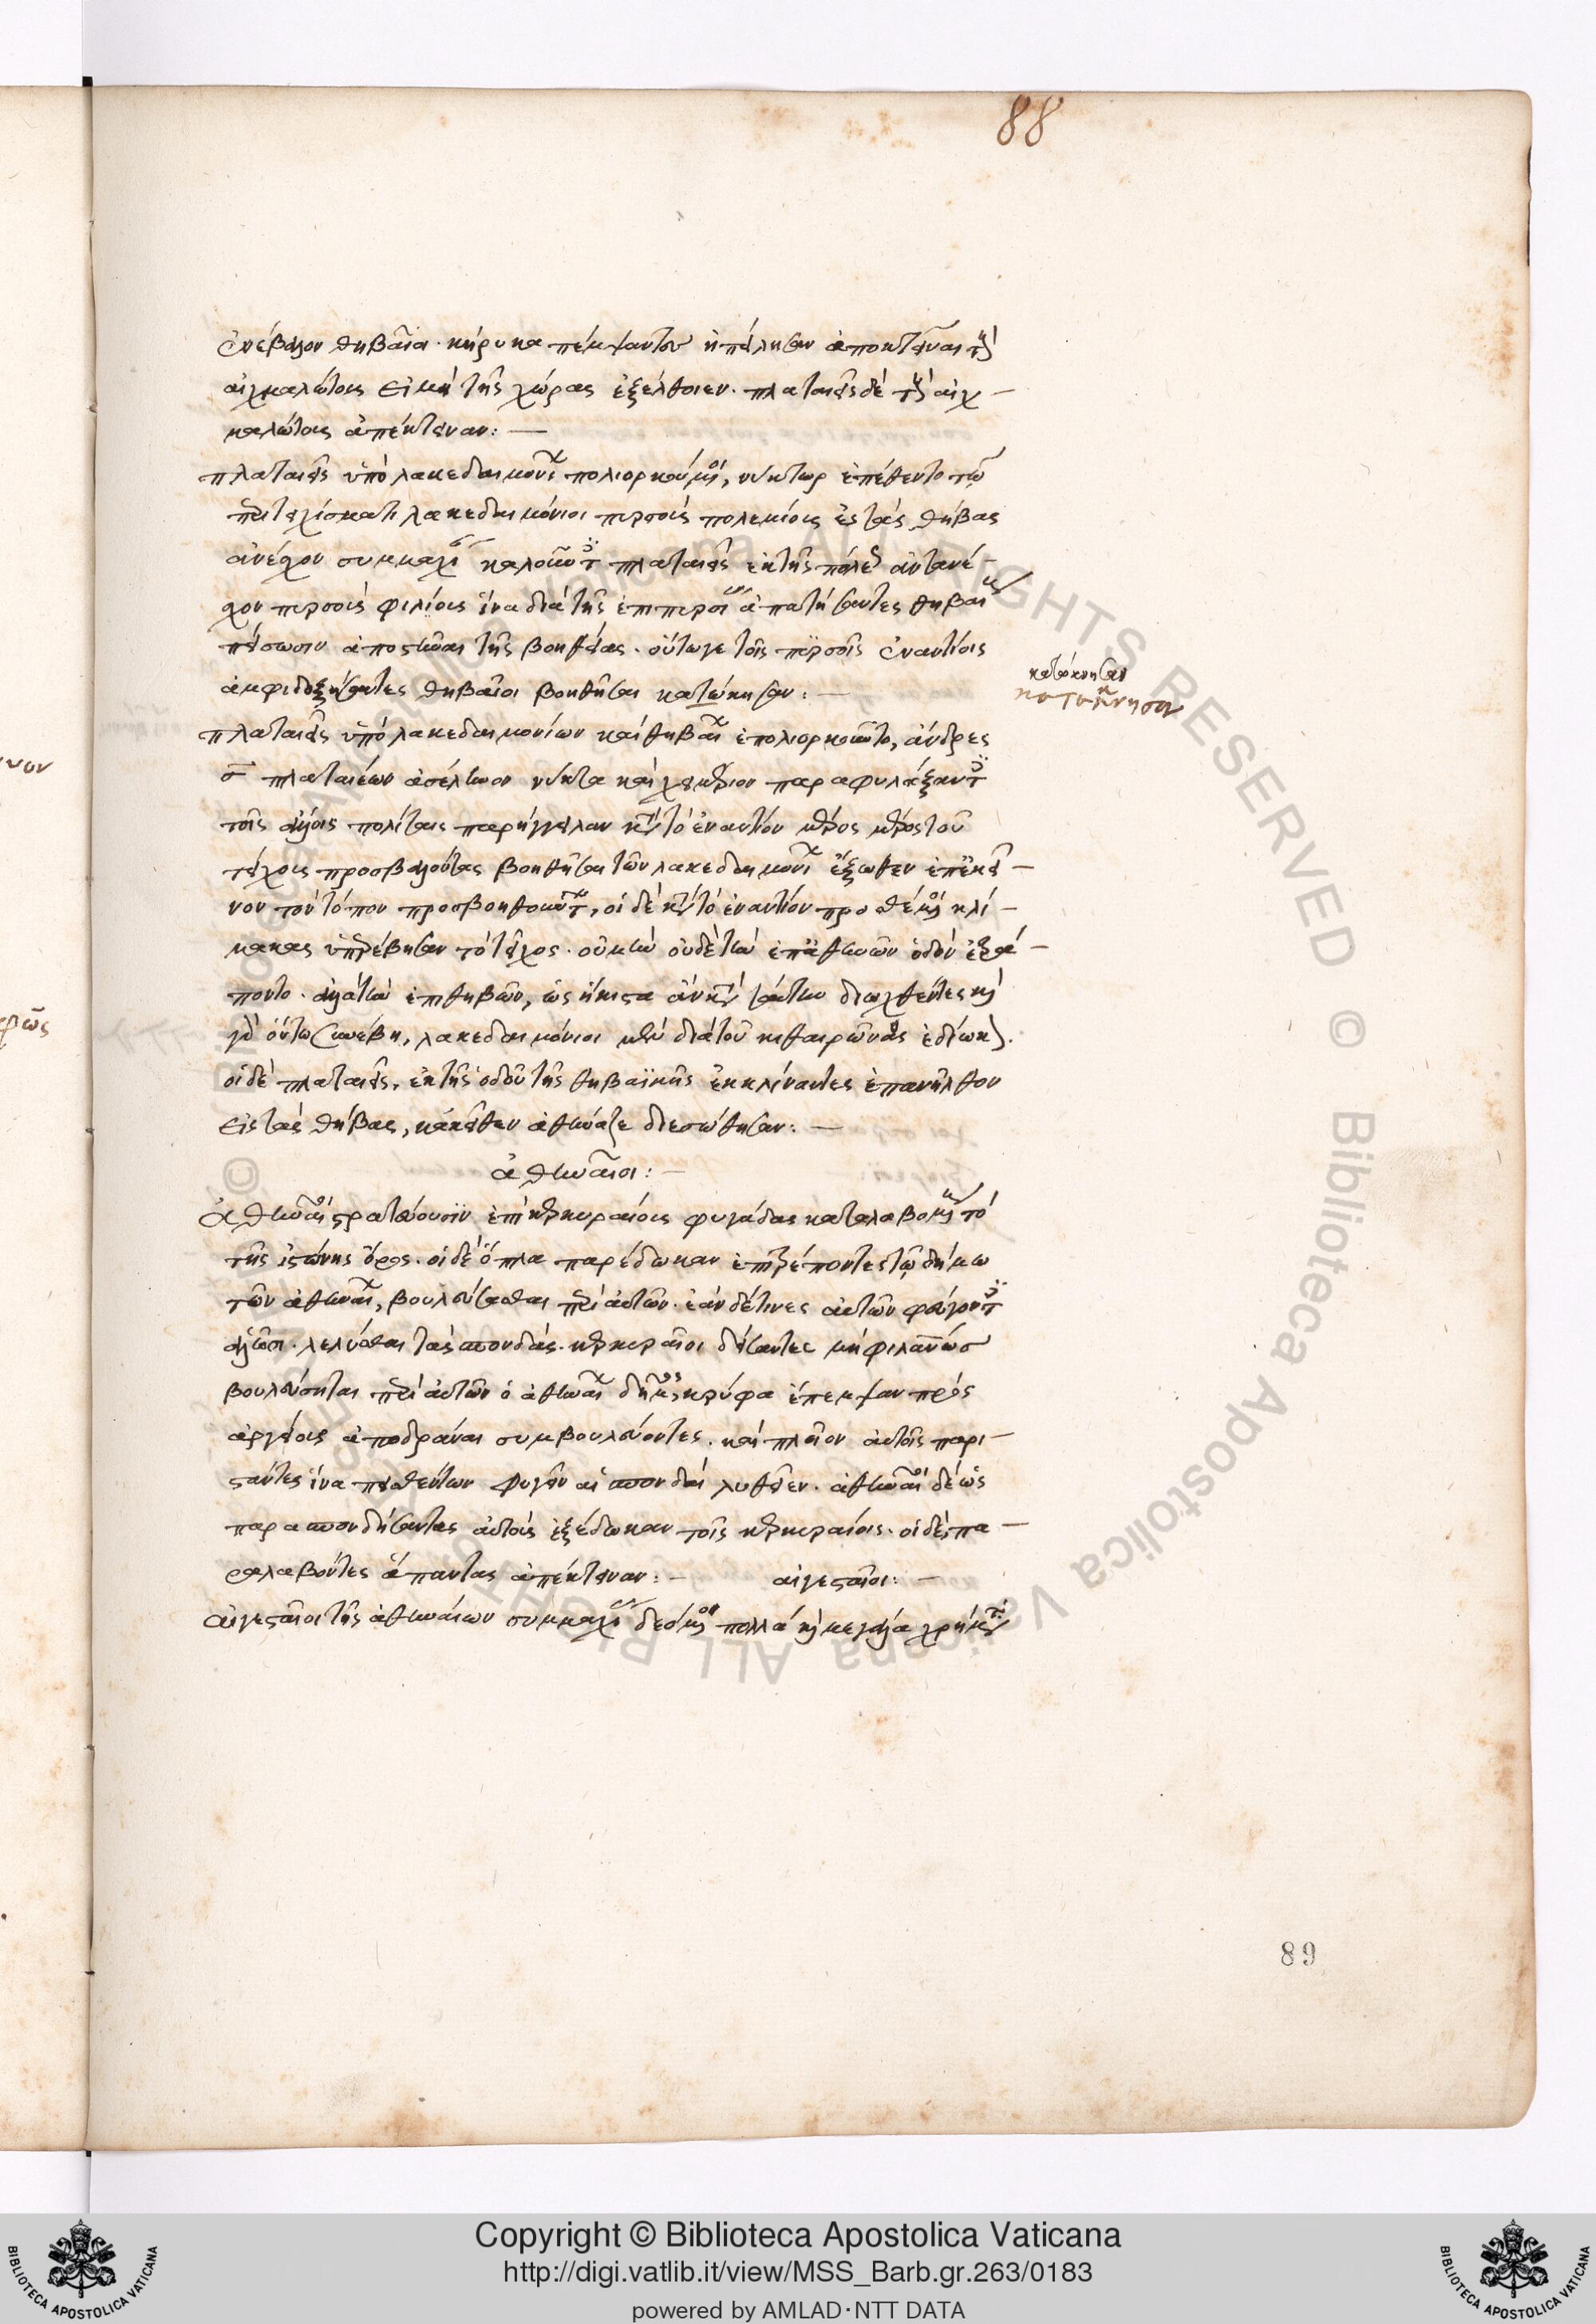 88
ἐνέβαλον θηβαῖοι. κήρυκα πέμψαντες ἠπείλησαν ἀποκτεῖναι τοὺς
αἰχμαλώτους εἰ μὴ τῆς χώρας ἐξέλθοιεν. πλαταιεῖς δὲ τοὺς αἰχ—
μαλώτους ἀπέκτειναν:—
πλαταιεῖς ὑπὸ λακεδαιμονίων πολιορκούμενοι, νύκτωρ ἐπέθεντο τῷ
περιτειχίσματι λακεδαιμόνιοι πυρσοὺς πολεμίους ἐς τὰς θήβας
ἀνέχον συμμαχίαν καλοῦντες πλαταιεῖς ἐκ τῆς πόλεως ἀντανέ—
χον πυρσοὺς φιλίους ἵνα διὰ τῆς ἀπατήσαντες θηβαίους
πείσωσιν ἀποστῆναι τῆς βοηθείας. οὕτωγε τοῖς πυρσοῖς ἐναντίοις
ἀμφιδοξήσαντες θηβαῖοι βοηθῆσαι κατώκησαν:—
κατώκνησαν
κατωκνησαν
πλαταιεῖς ὑπὸ λακεδαιμονίων καὶ θηβαίων ἐπολιορκοῦντο, ἄνδρες
σ πλαταιέων ἀσέληνον νύκτα καὶ χειμέριον παραφυλάξαντες
τοῖς ἄλλοις πολίταις παρήγγειλαν κατὰ τὸ ἐναντίον μέρος τοῦ
τείχους προσβαλόντας βοηθῆσαι τῶν λακεδαιμονίων ἔξωθεν ἐπ' ἐκεῖ—
νον τὸν τόπον προσβοηθούντων, οἱ δὲ κατὰ τὸ ἐναντίον προθέμενοι κλί—
μακας ὑπερέβησαν τὸ τεῖχος. οὐ μὴν οὐδὲ τὴν ἐπ' ἀθηνῶν ὁδὸν ἐτρά—
ποντο. ἀλλὰ τὴν ἐπὶ θηβῶν, ὡς ἥκιστα ἂν κατὰ ταύτην διωχθέντες καὶ
γὰρ οὕτω συνέβη, λακεδαιμόνιοι μὲν διὰ τοῦ κιθαιρῶνος ἐδίωκον.
οἱ δὲ πλαταιεῖς, ἐκ τῆς ὁδοῦ τῆς θηβαϊκῆς ἐκκλίναντες ἐπανῆλθον
εἰς τὰς θήβας, κἀκεῖθεν ἀθήναζε διεσώθησαν:—
ἀθηναῖοι:—
Ἀθηναῖοι στρατεύουσιν ἐπὶ κερκυραίους φυγάδας καταλαβομένους τὸ
τῆς ἰστώνης ὄρος. οἱ δὲ ὅπλα παρέδωκαν ἐπιτρέποντες τῷ δήμω
τῶν ἀθηναίων, βουλεύσασθαι περὶ αὐτῶν. ἐὰν δέ τινες αὐτῶν φεύγοντες
ἁλῶσι. λελύσθαι τὰς σπονδάς. κερκυραῖοι δείσαντες μὴ φιλανθρώπως
βουλεύσηται περὶ αὐτῶν ὁ ἀθηναίων δῆμος κρύφα ἔπεμψαν πρὸς
ἀργείους ἀποδρᾶναι συμβουλεύοντες. καὶ πλοῖον αὐτοῖς παρι—
στάντες ἵνα πεισθέντων φυγεῖν αἱ σπονδαὶ λυθεῖεν. ἀθηναῖοι δὲ ὡς
παρασπονδήσαντας αὐτοὺς ἐξέδωκαν τοῖς κερκυραίοις. οἱ δὲ, πα—
ραλαβόντες ἅπαντας ἀπέκτειναν:— αἰγεσταῖοι:—
Αἰγεσταῖοι τῆς ἀθηναίων συμμαχίας δεόμενοι πολλὰ καὶ μεγάλα χρήματα
89
Copyright © Biblioteca Apostolica Vaticana
http://digi.vatlib.it/view/MSS_Barb.gr.263/0183
powered by AMLAD·NTT DATA